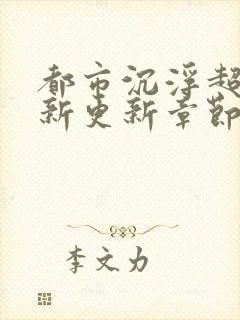 都市沉浮超
新更新章節
李文力